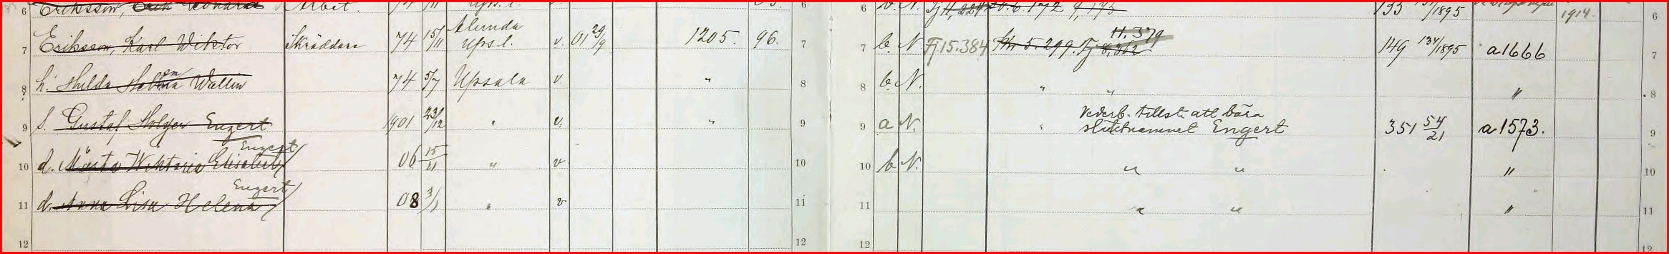 6 Eriksson, Arbet. 74 11 Ups.l. 6 6 b. N. 133 1895 1914. 6
7 Eriksson, Karl Wiktor Skräddare 74 15/11 Alunda Ups.l. v. 01 29/9 1205. 96. 7 7 b. N. Fj 15.384 Str. 5. 299. Fj 8.312 11.379 149 134/1895 a1666 7
8 h. Hilda Wallin 74 5/7 Upsala v. " 8 8 b. N. " " " 8
9 s. Gustaf Holger Engert 1901 23/12 " v. " 9 9 a N. " Vederb. tillst. att bära släktnamnet Engert 351 54/21 a1573. 9
10 d. Märta Wiktoria Elisabet Engert 06 15/11 " v 10 10 b N. " " " 10
11 d. Anna Lisa Helena Engert 08 3/1 " v 11 11 " " " 11
12 12 12 12